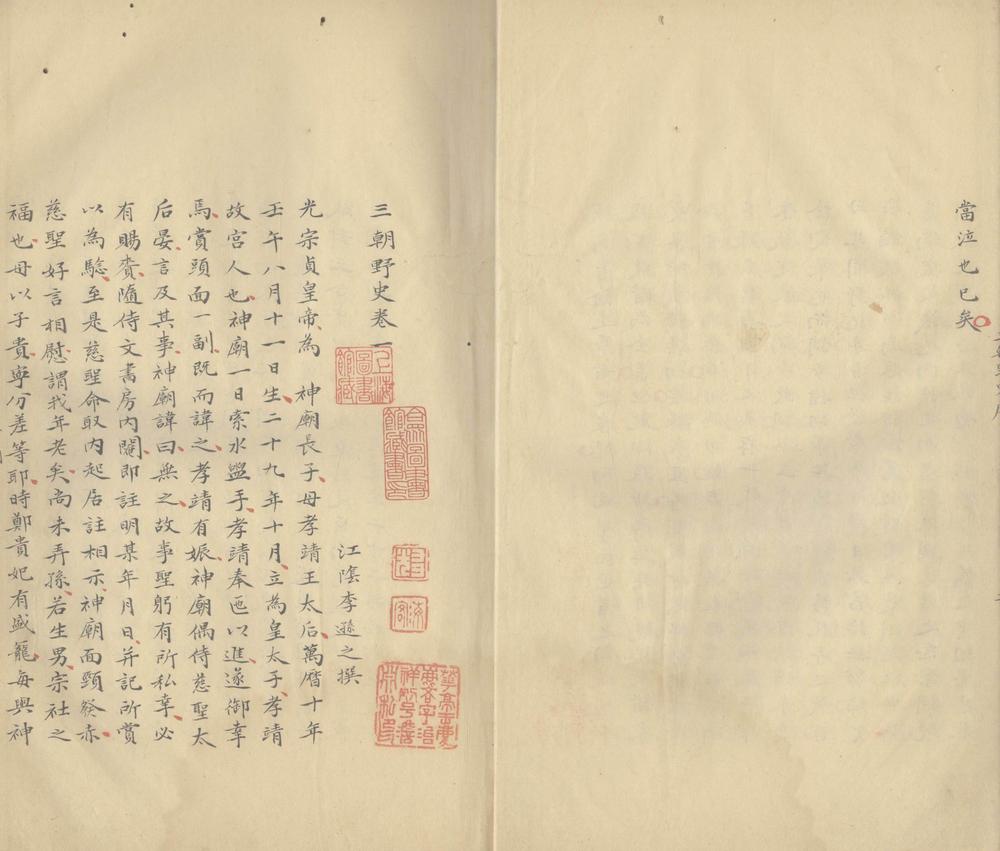 當泣也已矣
三朝野史卷一
江陰李遜之撰
光宗貞皇帝為 神廟長子母孝靖王太后萬曆十年
壬午八月十一日生二十九年十月立為皇太子孝靖
故宮人也神廟一日索水盥手孝靖奉匜以進遂御幸
焉賞頭面一副既而諱之孝靖有娠神廟偶侍慈聖太
后晏言及其事神廟諱曰無之故事聖躬有所私幸必
有賜賚隨侍文書房內閹即註明某年月日并記所賞
以為驗至是慈聖命取內起居註相示神廟面頸發赤
慈聖好言相慰謂我年老矣尚未弄孫若生男宗社之
福也母以子貴寧分差等耶時鄭貴妃有盛寵每與神